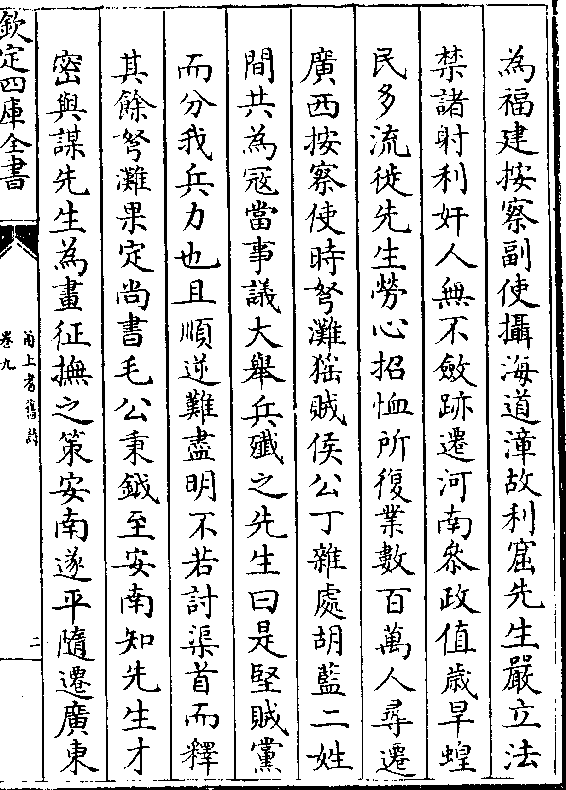 為福建按察副使攝海道漳故利窟先生嚴立法
禁諸射利奸人無不斂跡遷河南叅政值歲旱蝗
民多流徙先生勞心招恤所復業數百萬人尋遷
廣西按察使時弩灘猺賊侯公丁雜處胡藍二姓
間共為冦當事議大舉兵殲之先生曰是堅賊黨
而分我兵力也且順逆難盡明不若討渠首而釋
其餘弩灘果定尚書毛公秉鉞至安南知先生才
密與謀先生為畫征撫之策安南遂平隨遷廣東
欽定四庫全書
甬上耆舊詩
卷九
二